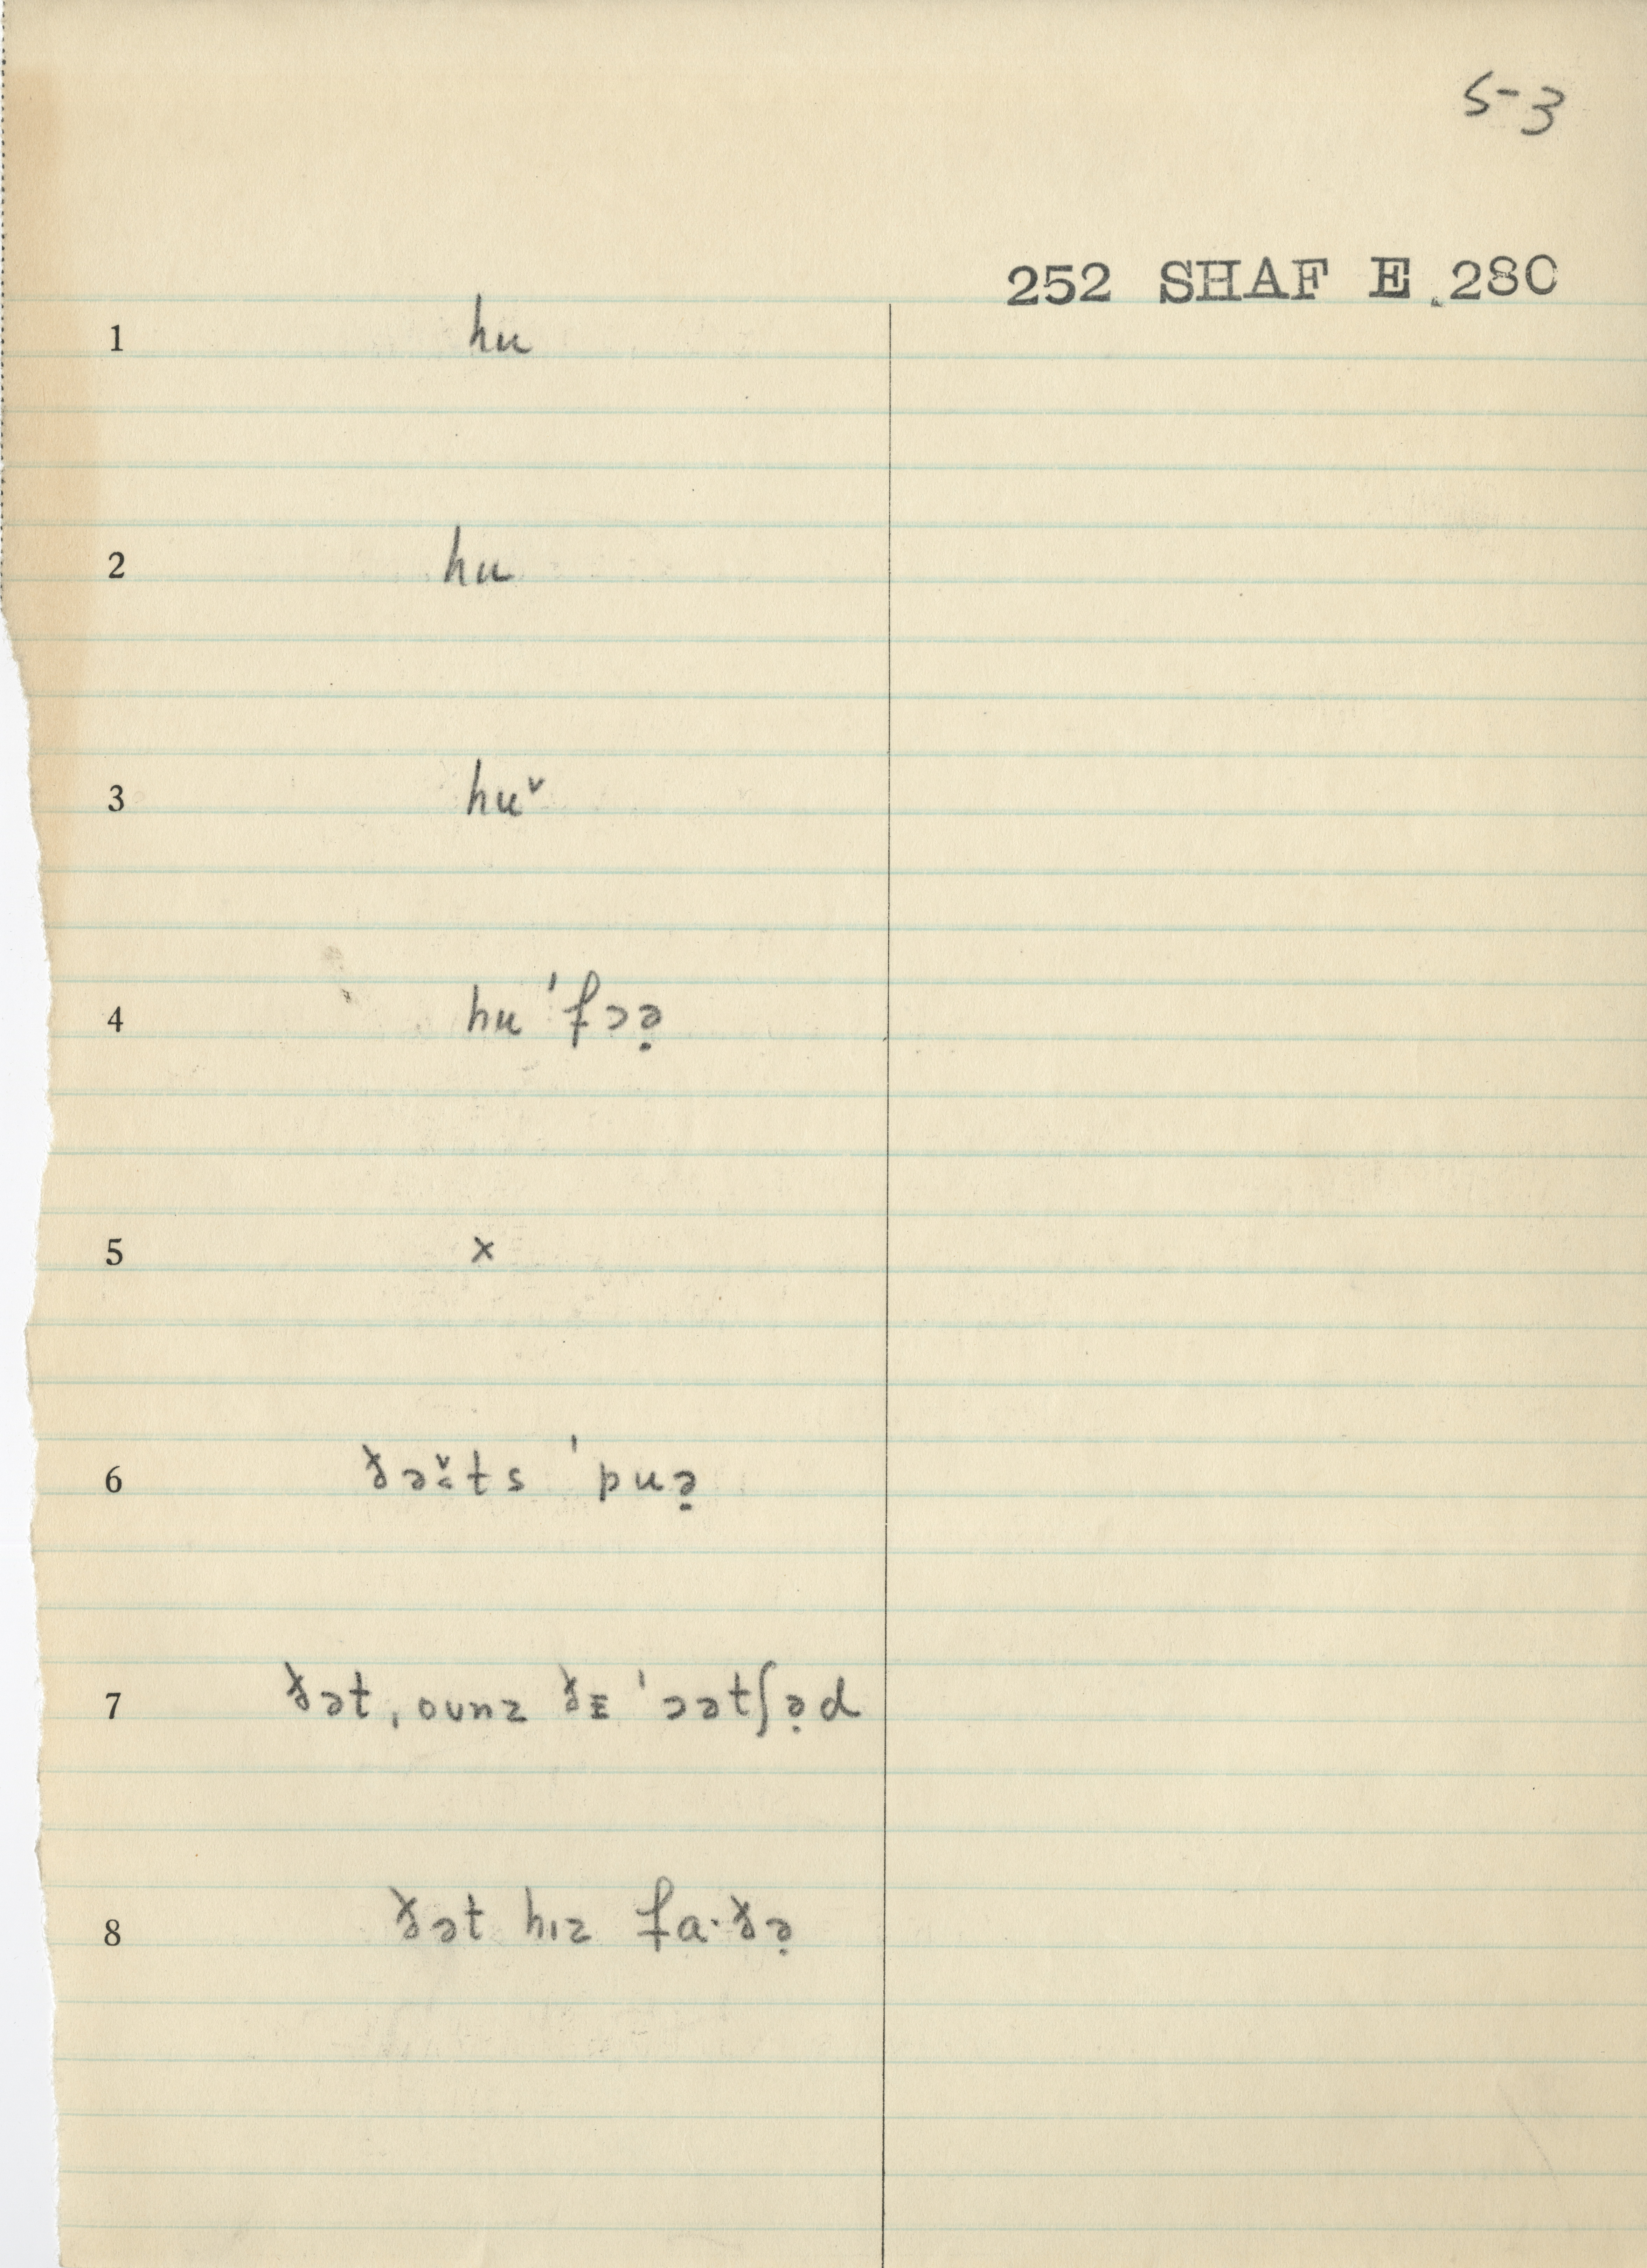 5-3
252 SHAF E 280
1 hu
2 hu
3 huˇ
4 hu ˈfɔə̣
5 x
6 ðə̌ts ˈpuə̣
7 ðət ˌoʊnz ðᴇ ˈɔətʃə̣d
8 ðət hɪz fa·ðə̣